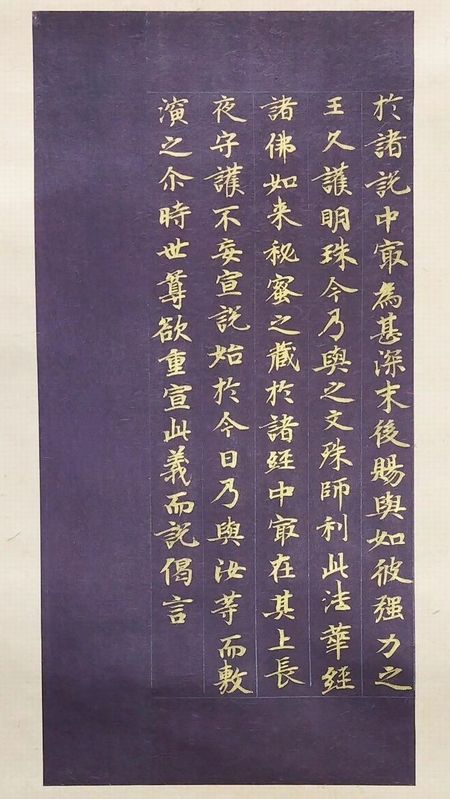 於諸説中㝡為甚深末後賜與如彼强力之
王久護明珠今乃與之文殊師利此法華經
諸佛如来秘蜜之藏於諸經中㝡在其上長
夜守護不妄宣説始於今日乃與汝等而敷
演之尒時世尊欲重宣此義而説偈言